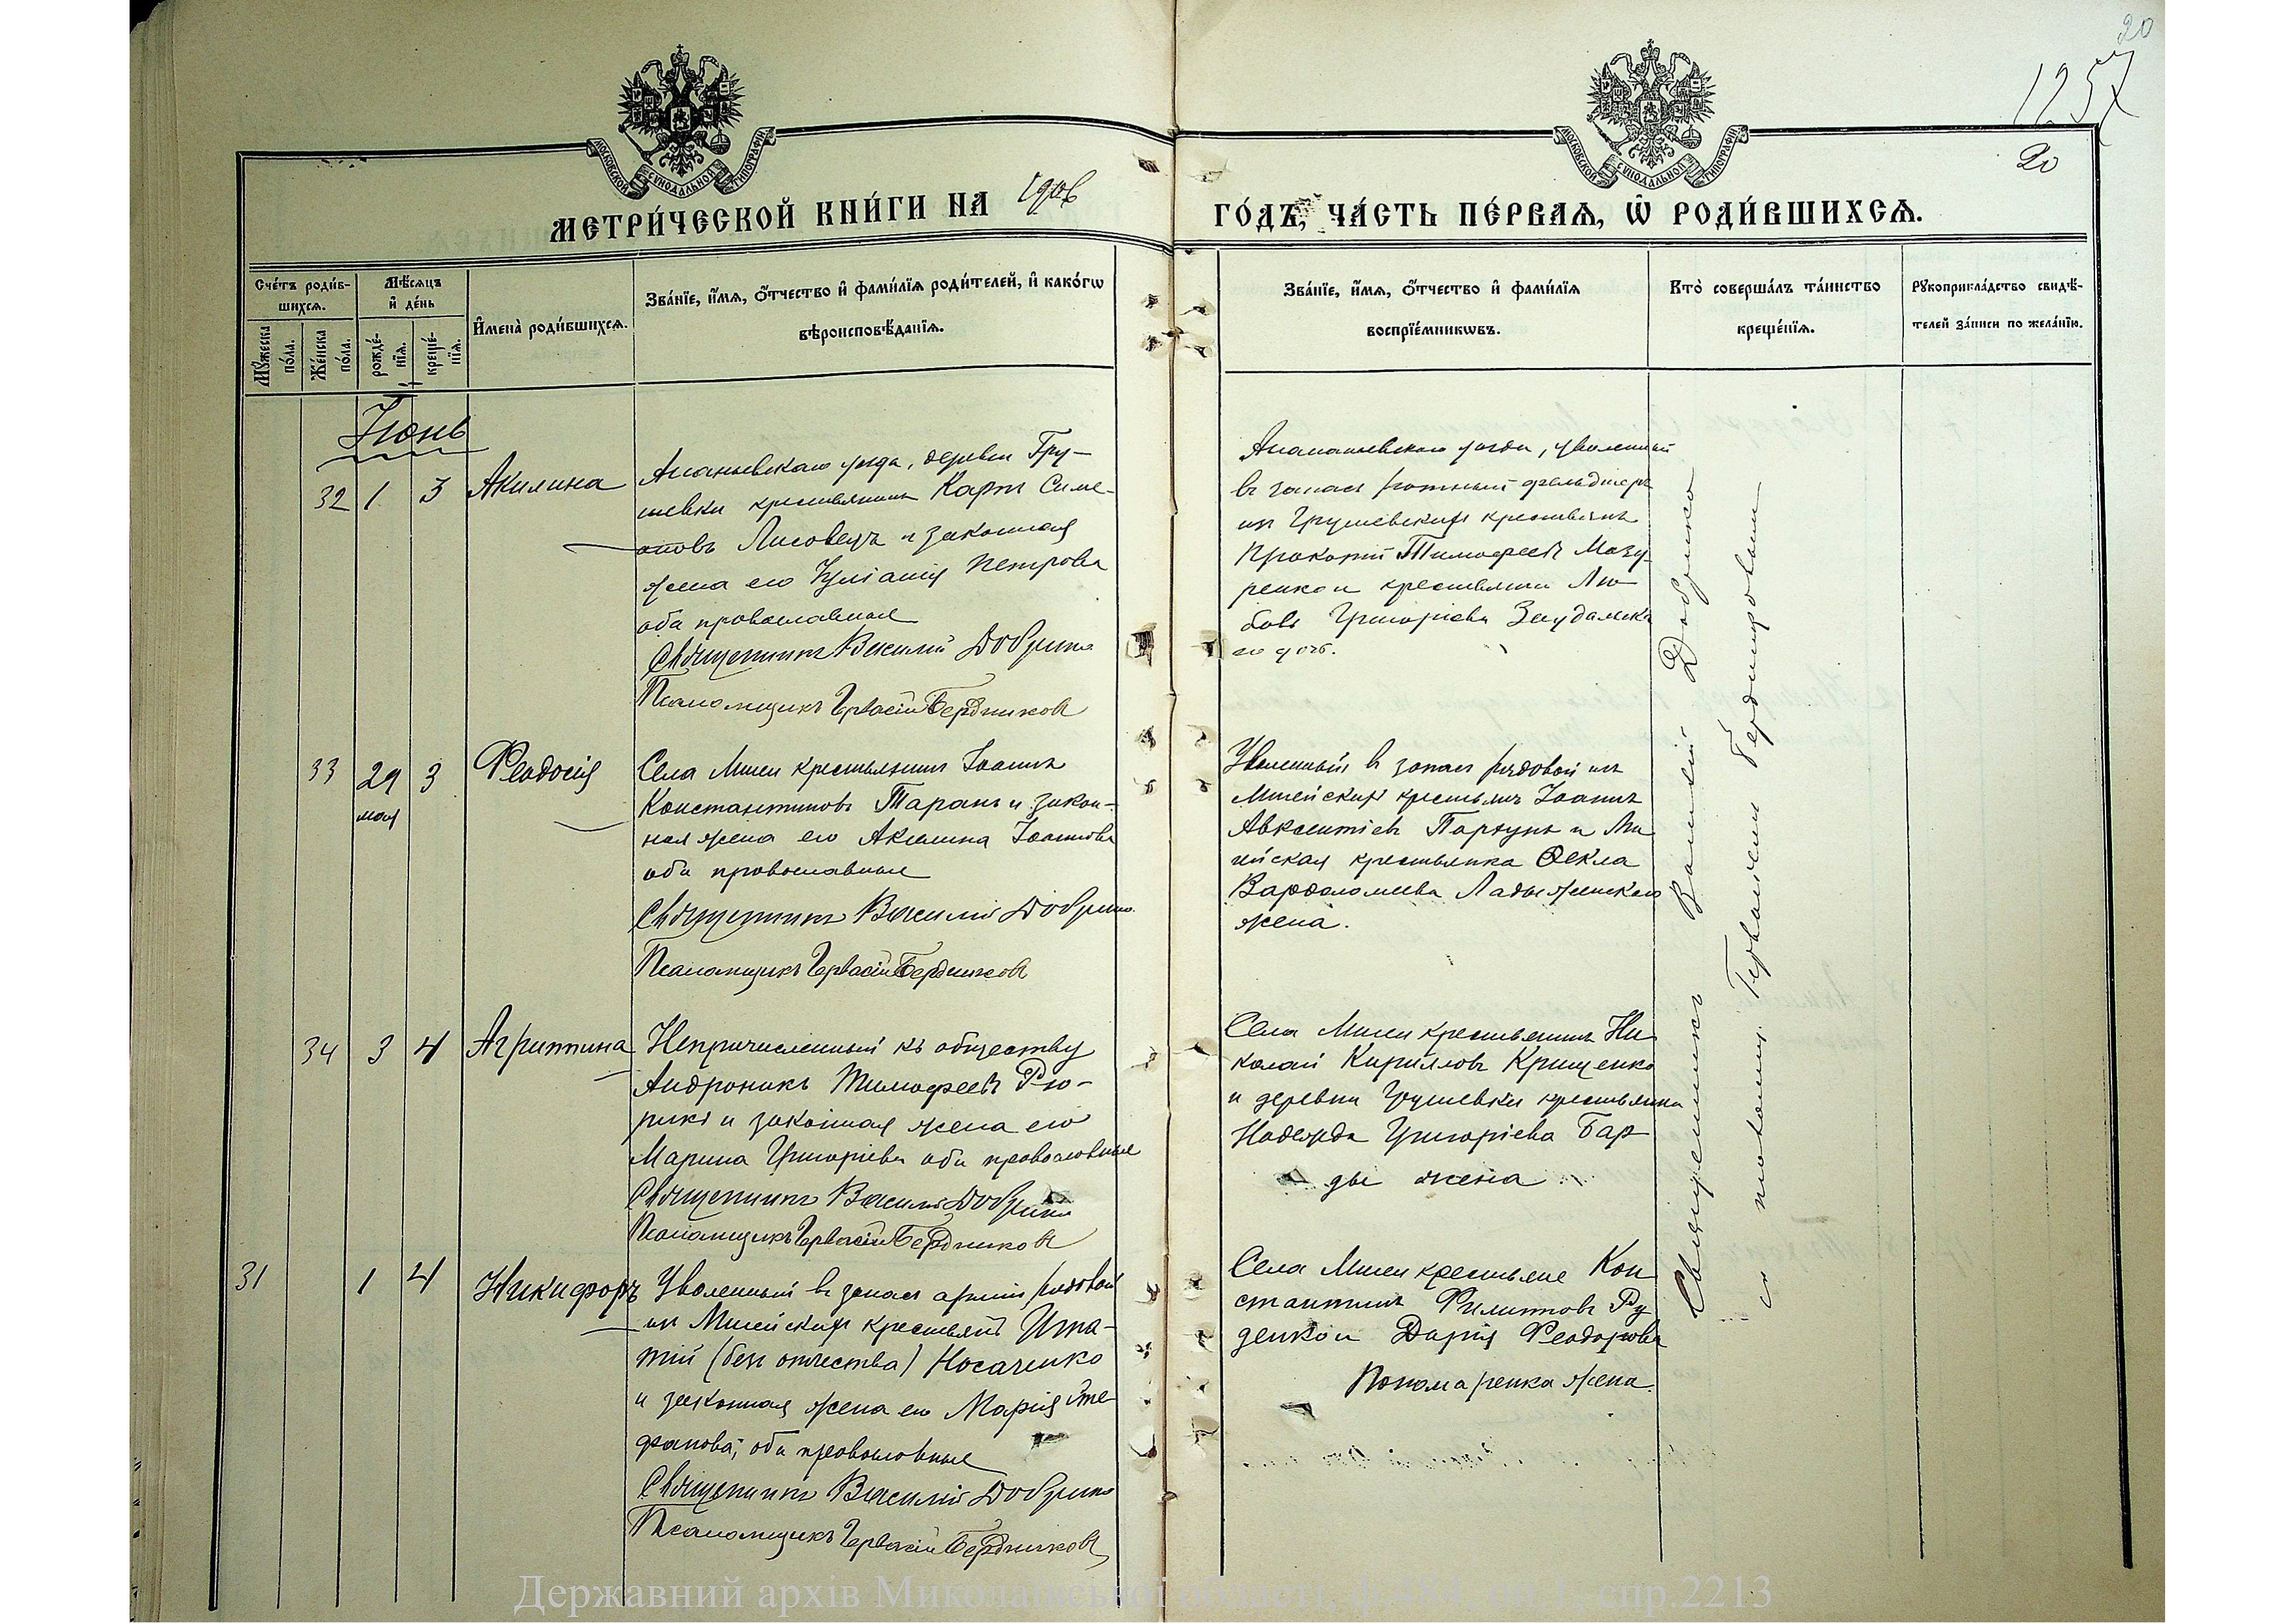 20
1257
20
МОСКОВСКОЙ СѴНОДАЛЬНОЙ ТИПОГРАФІИ
МОСКОВСКОЙ СѴНОДАЛЬНОЙ ТИПОГРАФІИ
МЕТРИ́ЧЕСКОЙ КНИ́ГИ НА 1906 ГО́ДЪ, ЧА́СТЬ ПЕ́РВАѦ, Ѡ҆ РОДИ́ВШИХСѦ.
Сче́тъ роди́в-
шихсѧ.
Мѹ́жеска по́ла.
Же́нска по́ла.
Мѣ́сѧцъ
и҆ де́нь
рожде́-нїѧ.
креще́-нїѧ.
И҆мена̀ роди́вшихсѧ.
Зва́нїе, и҆́мѧ, ѻ҆́тчество и҆ фами́лїѧ роди́телей, и҆ како́гѡ
вѣроисповѣ́данїѧ.
Зва́нїе, и҆́мѧ, ѻ҆́тчество и҆ фами́лїѧ
воспрїе́мникѡвъ.
Кто̀ соверша́лъ та́инство
креще́нїѧ.
Рꙋкоприкла́дство свидѣ́-
телей за́писи по жела́нїю.
Іюнь
32 1 3 Акилина
Ананьевскаго уезда, деревни Гру-
шевки крестьянинъ Карпъ Симе-
оновъ Лисовецъ и законная
жена его Іуліанія Петрова
оба православные
Священникъ Василій Добрина
Псаломщикъ Гервасій Бердниковъ
Ананьевскаго уезда, уволенный
въ запасъ ротный фельдшеръ
из Грушевскихъ крестьянъ
Прокопій Тимофеевъ Мазу-
ренко и крестьянки Лю-
бовь Григоріева
его дочь.
33 29 3 Феодосія
мая
Села Мигеи крестьянинъ Іоаннъ
Константиновъ Таранъ и закон-
ная жена его Акилина Іоаннова
оба православные
Священникъ Василій Добрина
Псаломщикъ Гервасій Бердниковъ
Уволенный въ запасъ рядовой изъ
Мигейскихъ крестьянъ Іоаннъ
Авксентіевъ и Ми-
гейская крестьянка Ѳекла
Варфоломеева Ладыженскаго
жена.
34 3 4 Агриппина
Непричисленный къ обществу
Андроникъ Тимофеевъ Рю-
рикъ и законная жена его
Марина Григоріева оба православные
Священникъ Василій Добрина
Псаломщикъ Гервасій Бердниковъ
Села Мигеи крестьянинъ Ни-
колай Кирилловъ Крищенко
и деревни Грушевки крестьянка
Надежда Григоріева Бар-
ды жена
31 1 4 Никифоръ
Уволенный въ запасъ арміи рядовой
изъ Мигейскихъ крестьянъ Игна-
тій (безъ отчества) Носаченко
и законная жена его Марія Сте-
фанова, оба православные
Священникъ Василій Добрина
Псаломщикъ Гервасій Бердниковъ
Села Мигеи крестьяне Кон-
стантинъ Филипповъ Ру-
денко и Дарія Феодорова
Пономаренка жена.
Священникъ Василій Добрина
съ псаломщ. Гервасіемъ Бердниковымъ
Державний архів Миколаївської області, ф.484, оп.1, спр.2213